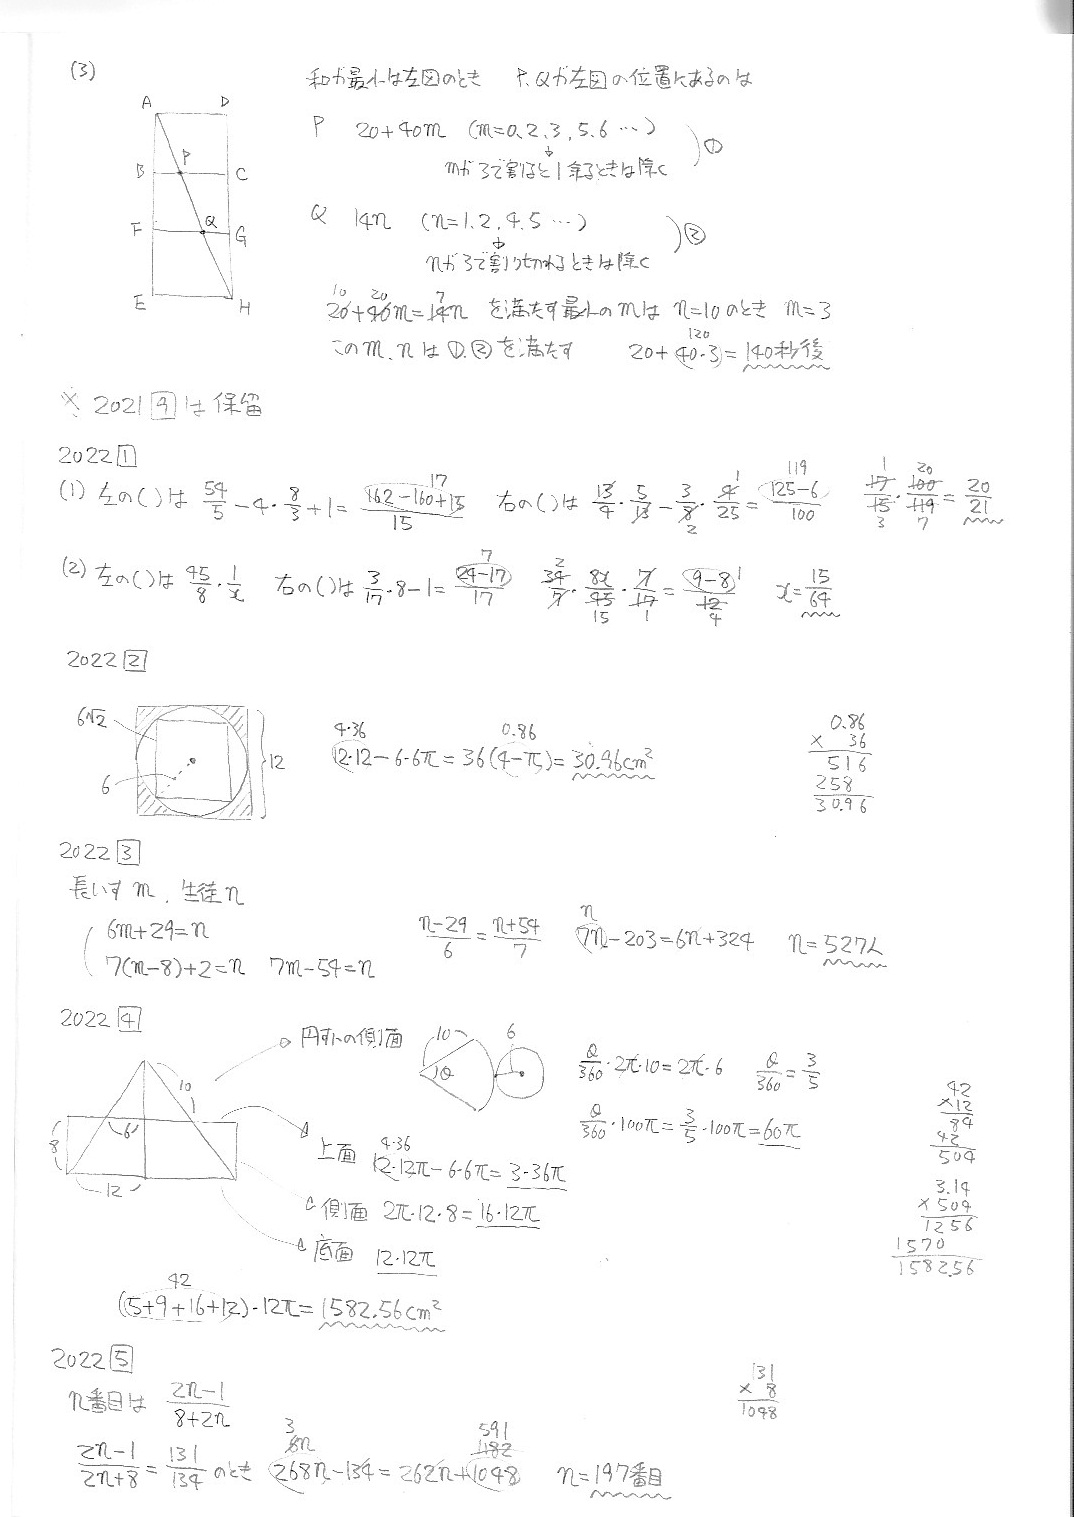 (3)
和が最小は左図のとき P, Qが左図の位置にあるのは
A D
P
B C
Q
F G
E H
P 20+40m (m=0, 2, 3, 5, 6 …)
mが3で割ると1余るときは除く
①
Q 14n (n=1, 2, 4, 5 …)
nが3で割り切れるときは除く
②
10 20 7
20+40m=14n を満たす最小のmは n=10のとき m=3
このm, nは①, ②を満たす 20+40·3=140秒後
120
※ 2021 9 は保留
2022 1
(1) 左の( )は 54/5 − 4·8/3 + 1 = (162−160+15)/15 右の( )は 13/4·5/13 − 3/8·4/25 = (125−6)/100 17/15·100/119 = 20/21
17 1 2 119 1 20 3 7
(2) 左の( )は 45/8·1/x 右の( )は 3/17·8−1 = (24−17)/17 34/7·8x/45·7/17 = (9−8)/12 x=15/64
7 2 15 1 1 4
2022 2
6√2
12
6
4·36 0.86
12·12−6·6π=36(4−π)=30.96cm²
0.86
× 36
516
258
30.96
2022 3
長いす m, 生徒 n
6m+29=n
7(m−8)+2=n 7m−54=n
(n−29)/6 = (n+54)/7 7n−203=6n+324 n=527人
n
2022 4
円すいの側面
10
6
8
12
10 θ 6
θ/360·2π·10=2π·6 θ/360=3/5
θ/360·100π=3/5·100π=60π
上面 12·12π−6·6π=3·36π
4·36
側面 2π·12·8=16·12π
底面 12·12π
42
(5+9+16+12)·12π=1582.56cm²
42
×12
84
42
504
3.14
×504
1256
1570
1582.56
2022 5
n番目は (2n−1)/(8+2n)
(2n−1)/(2n+8) = 131/134 のとき 268n−134=262n+1048 n=197番目
3 6n 591 1182
131
× 8
1048